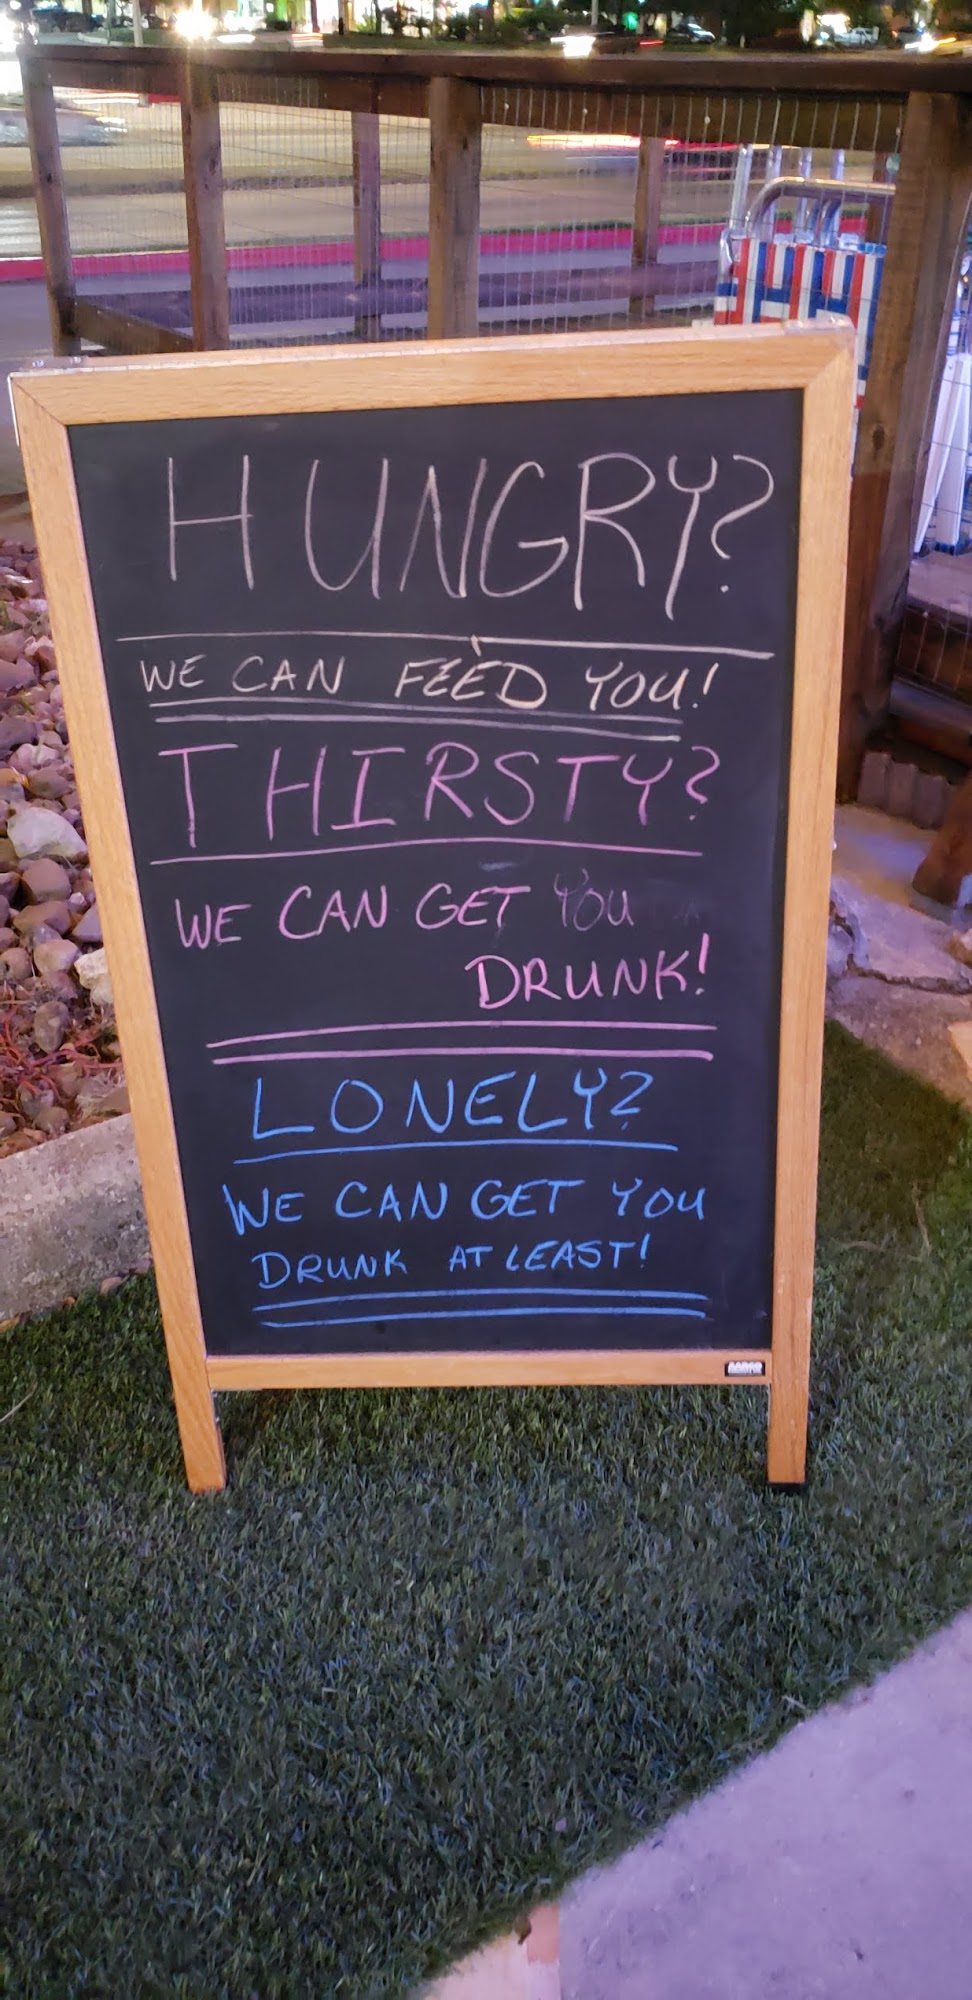 HUNGRY?
WE CAN FEED YOU!
THIRSTY?
WE CAN GET YOU
DRUNK!
LONELY?
WE CAN GET YOU
DRUNK AT LEAST!
AARCO